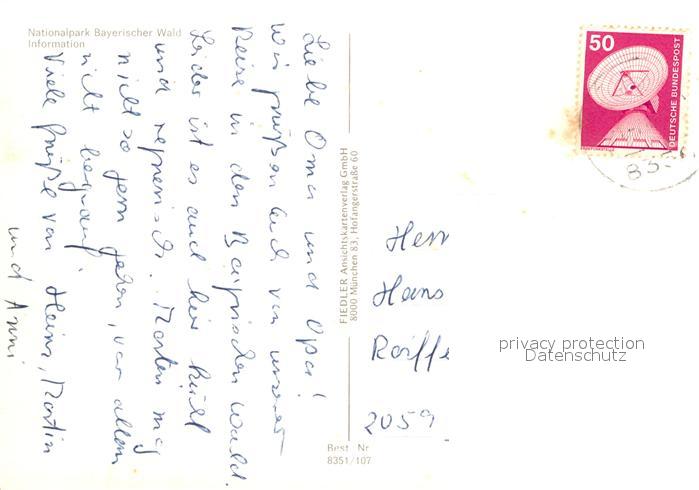 Nationalpark Bayerischer Wald
Information
Liebe Oma und Opa!
Wir grüßen Euch von unserer
Reise in den Bayrischen Wald.
Leider ist es auch hier kühl
und regnerisch. Martin mag
nicht so gern gehen, vor allem
nicht bergauf.
Viele Grüße von Heinz, Martin
und Anni
FIEDLER Ansichtskartenverlag GmbH
8000 München 83, Hofangerstraße 60
Best. Nr.
8351/107
50
DEUTSCHE BUNDESPOST
83
Herr
Hans
Raiffe
2059
privacy protection
Datenschutz